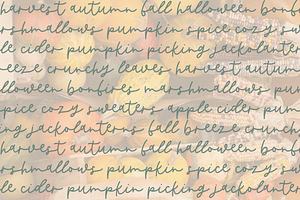 harvest autumn fall halloween bonfir
rshmallows pumpkin spice cozy swea
le cider pumpkin picking jackolanter
reeze crunchy leaves harvest autum
lloween bonfires marshmallows pum
spice cozy sweaters apple cider pum
ing jackolanterns fall breeze crunch
harvest autumn fall halloween bonfir
rshmallows pumpkin spice cozy sw
le cider pumpkin picking jackolanter